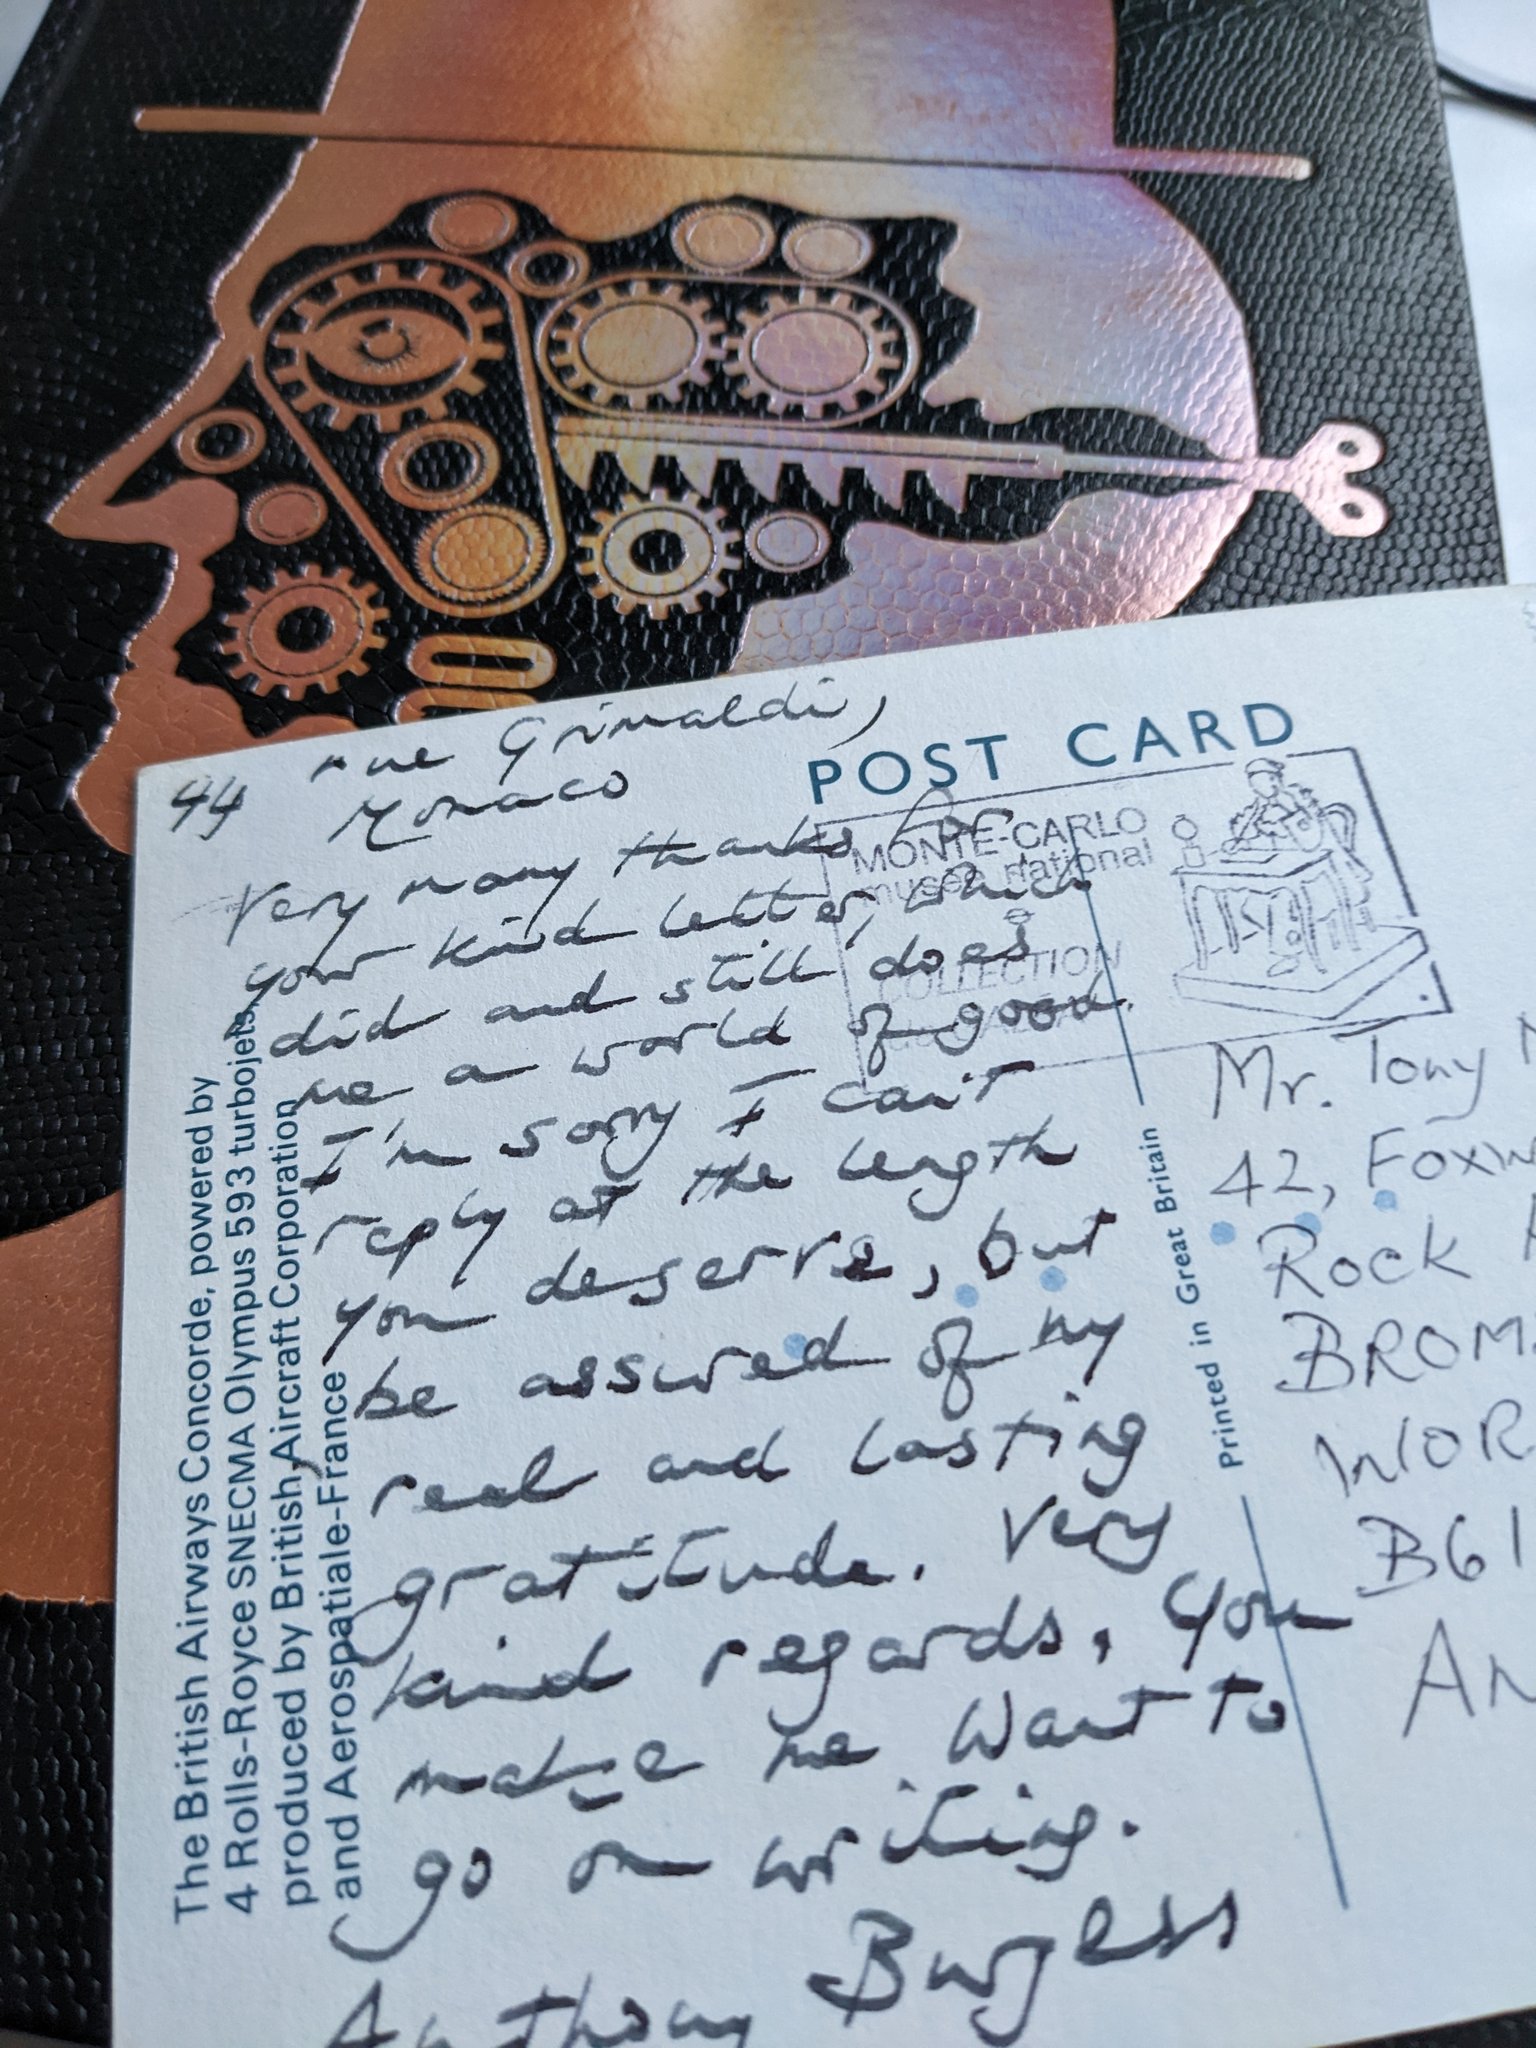 44 rue Grimaldi,
Monaco
Very many thanks for
your kind letter, which
did and still does
me a world of good.
I'm sorry I can't
reply at the length
you deserve, but
be assured of my
real and lasting
gratitude. Very
kind regards. You
make me want to
go on writing.
Anthony Burgess
POST CARD
MONTE-CARLO
musée national
COLLECTION
Mr. Tony
42,
Rock
B61
Printed in Great Britain
The British Airways Concorde, powered by
4 Rolls-Royce SNECMA Olympus 593 turbojets,
produced by British Aircraft Corporation
and Aerospatiale-France